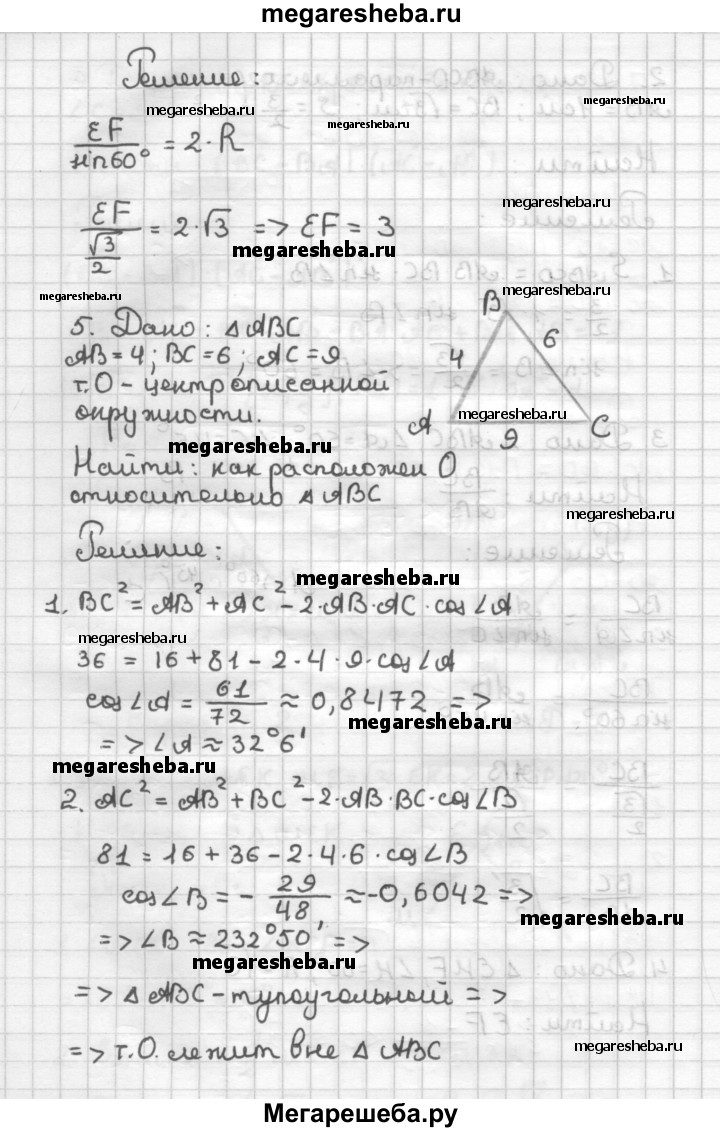 megaresheba.ru
Решение:
megaresheba.ru
megaresheba.ru
megaresheba.ru
EF/sin60° = 2·R
megaresheba.ru
EF/(√3/2) = 2·√3 => EF = 3
megaresheba.ru
megaresheba.ru
megaresheba.ru
5. Дано: △ABC
AB=4; BC=6; AC=9
т.O - центр описанной
окружности.
B
4
6
megaresheba.ru
A
9
C
megaresheba.ru
Найти: как расположен O
относительно △ABC
megaresheba.ru
Решение:
megaresheba.ru
1. BC² = AB² + AC² - 2·AB·AC·cos∠A
megaresheba.ru
36 = 16 + 81 - 2·4·9·cos∠A
cos∠A = 61/72 ≈ 0,8472 =>
megaresheba.ru
=> ∠A ≈ 32°6'
megaresheba.ru
2. AC² = AB² + BC² - 2·AB·BC·cos∠B
81 = 16 + 36 - 2·4·6·cos∠B
cos∠B = - 29/48 ≈ -0,6042 =>
megaresheba.ru
=> ∠B ≈ 232°50' =>
megaresheba.ru
=> △ABC - тупоугольный =>
=> т.O. лежит вне △ABC
megaresheba.ru
Мегарешеба.ру